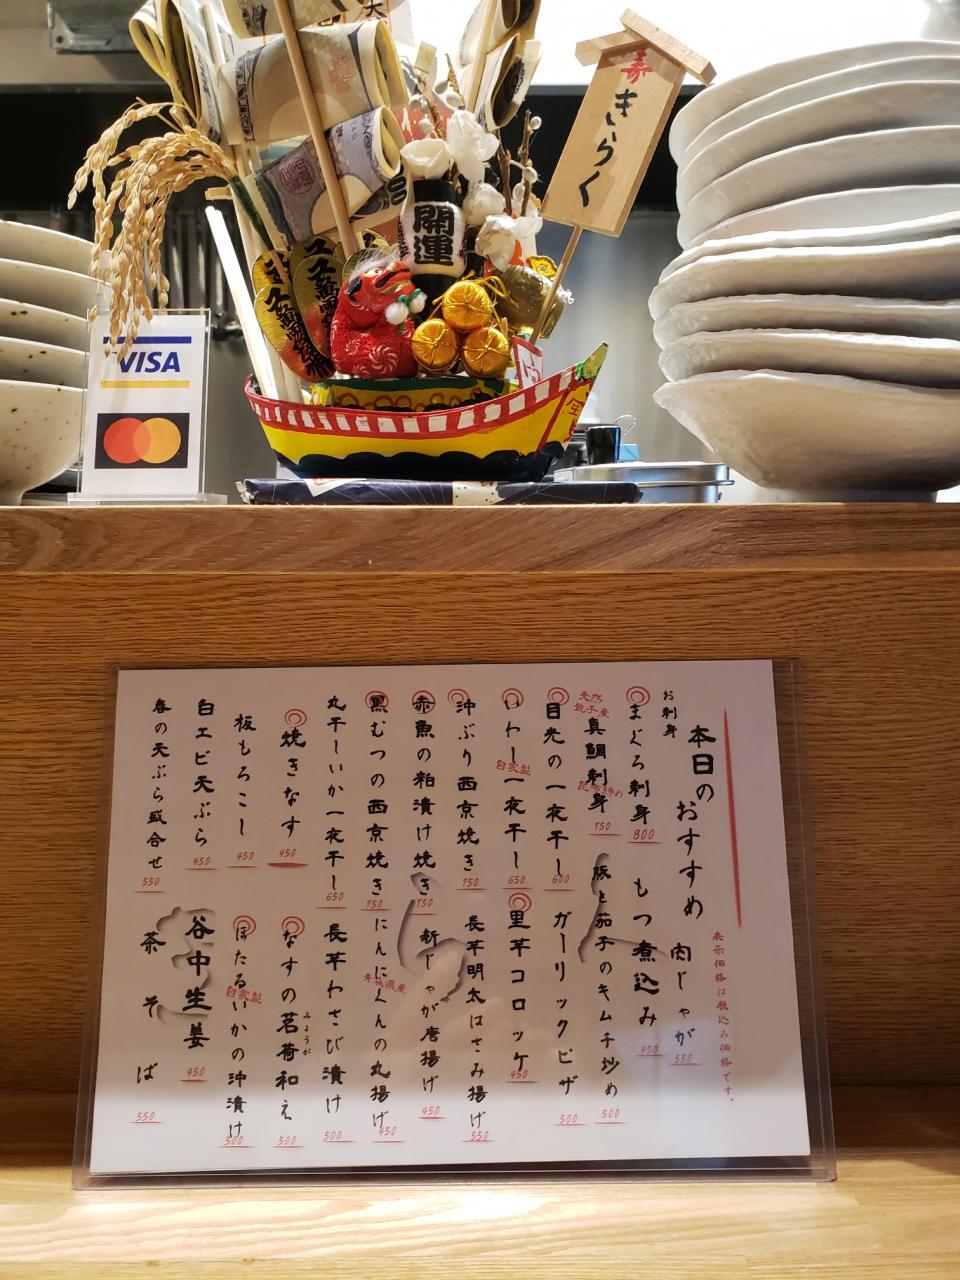 寿
きらく
開運
VISA
本日のおすすめ
表示価格は税込み価格です。
お刺身
まぐろ刺身
800
天然
銚子産
真鯛刺身
昆布締め
750
目光の一夜干し
600
いわし一夜干し
自家製
650
沖ぶり西京焼き
750
赤魚の粕漬け焼き
750
黒むつの西京焼き
750
丸干しいか一夜干し
650
焼きなす
450
板もろこし
450
白エビ天ぷら
450
春の天ぷら盛合せ
550
肉じゃが
550
もつ煮込み
450
豚と茄子のキムチ炒め
500
ガーリックピザ
500
里芋コロッケ
450
長芋明太はさみ揚げ
550
新じゃが唐揚げ
450
にんにくの丸揚げ
450
長芋わさび漬け
500
なすの茗荷和え
みょうが
500
ほたるいかの沖漬け
自家製
500
谷中生姜
450
茶そば
550